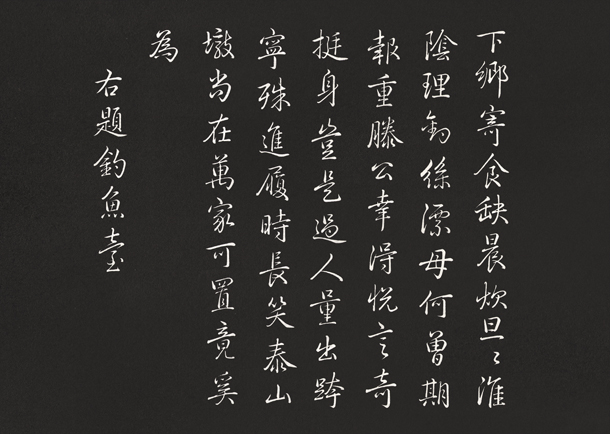 下鄉寄食缺晨炊旦〻淮
陰理釣絲漂母何曾期
報重滕公幸得悦言奇
挺身豈是過人量出跨
寧殊進履時長笑泰山
墩尚在萬家可置竟奚
為
右題釣魚臺